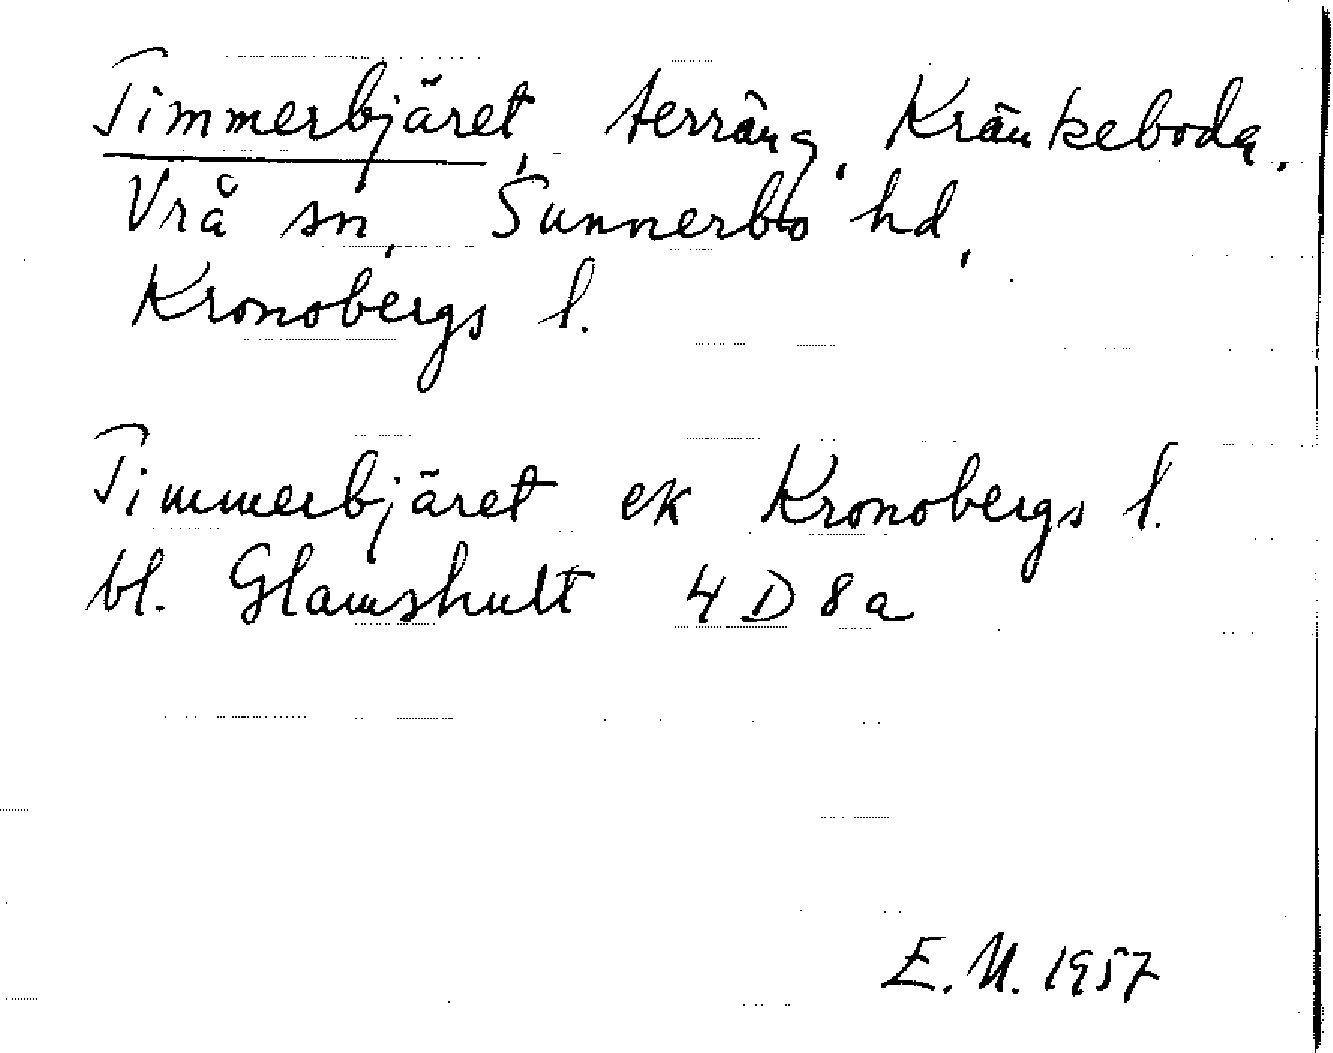 Timmerbjäret, terräng, Kränkeboda,
Vrå sn, Sunnerbo hd,
Kronobergs l.
Timmerbjäret ek Kronobergs l.
bl. Glamshult 4 D 8 a
E. U. 1957